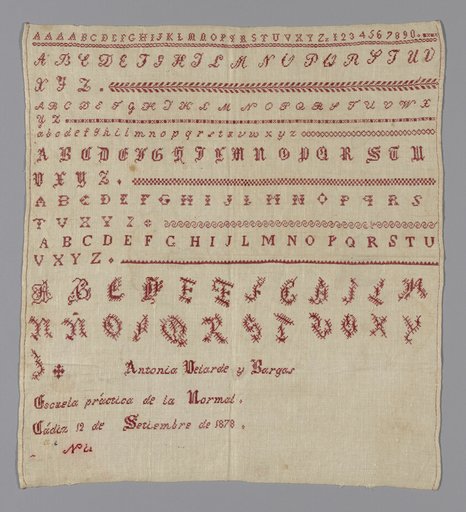 A A A A B C D E F G H I J K L M N O P Q R S T U V X Y Z 1 2 3 4 5 6 7 8 9 0
A B C D E F G H I J K L M N O P Q R S T U V
X Y Z
A B C D E F G H I J K L M N O P Q R S T U V W X
Y Z
a b c d e f g h i j l m n o p q r s t u v w x y z
A B C D E F G H I J L M N O P Q R S T U
V X Y Z
A B C D E F G H I J L M N O P Q R S
T U V X Y Z
A B C D E F G H I J L M N O P Q R S T U
V X Y Z
A B C D E F G H I J L M
N Ñ O P Q R S T U V X Y
Z
Antonia Velarde y Bargas
Escuela práctica de la Normal.
Cádiz 12 de Setiembre de 1878.